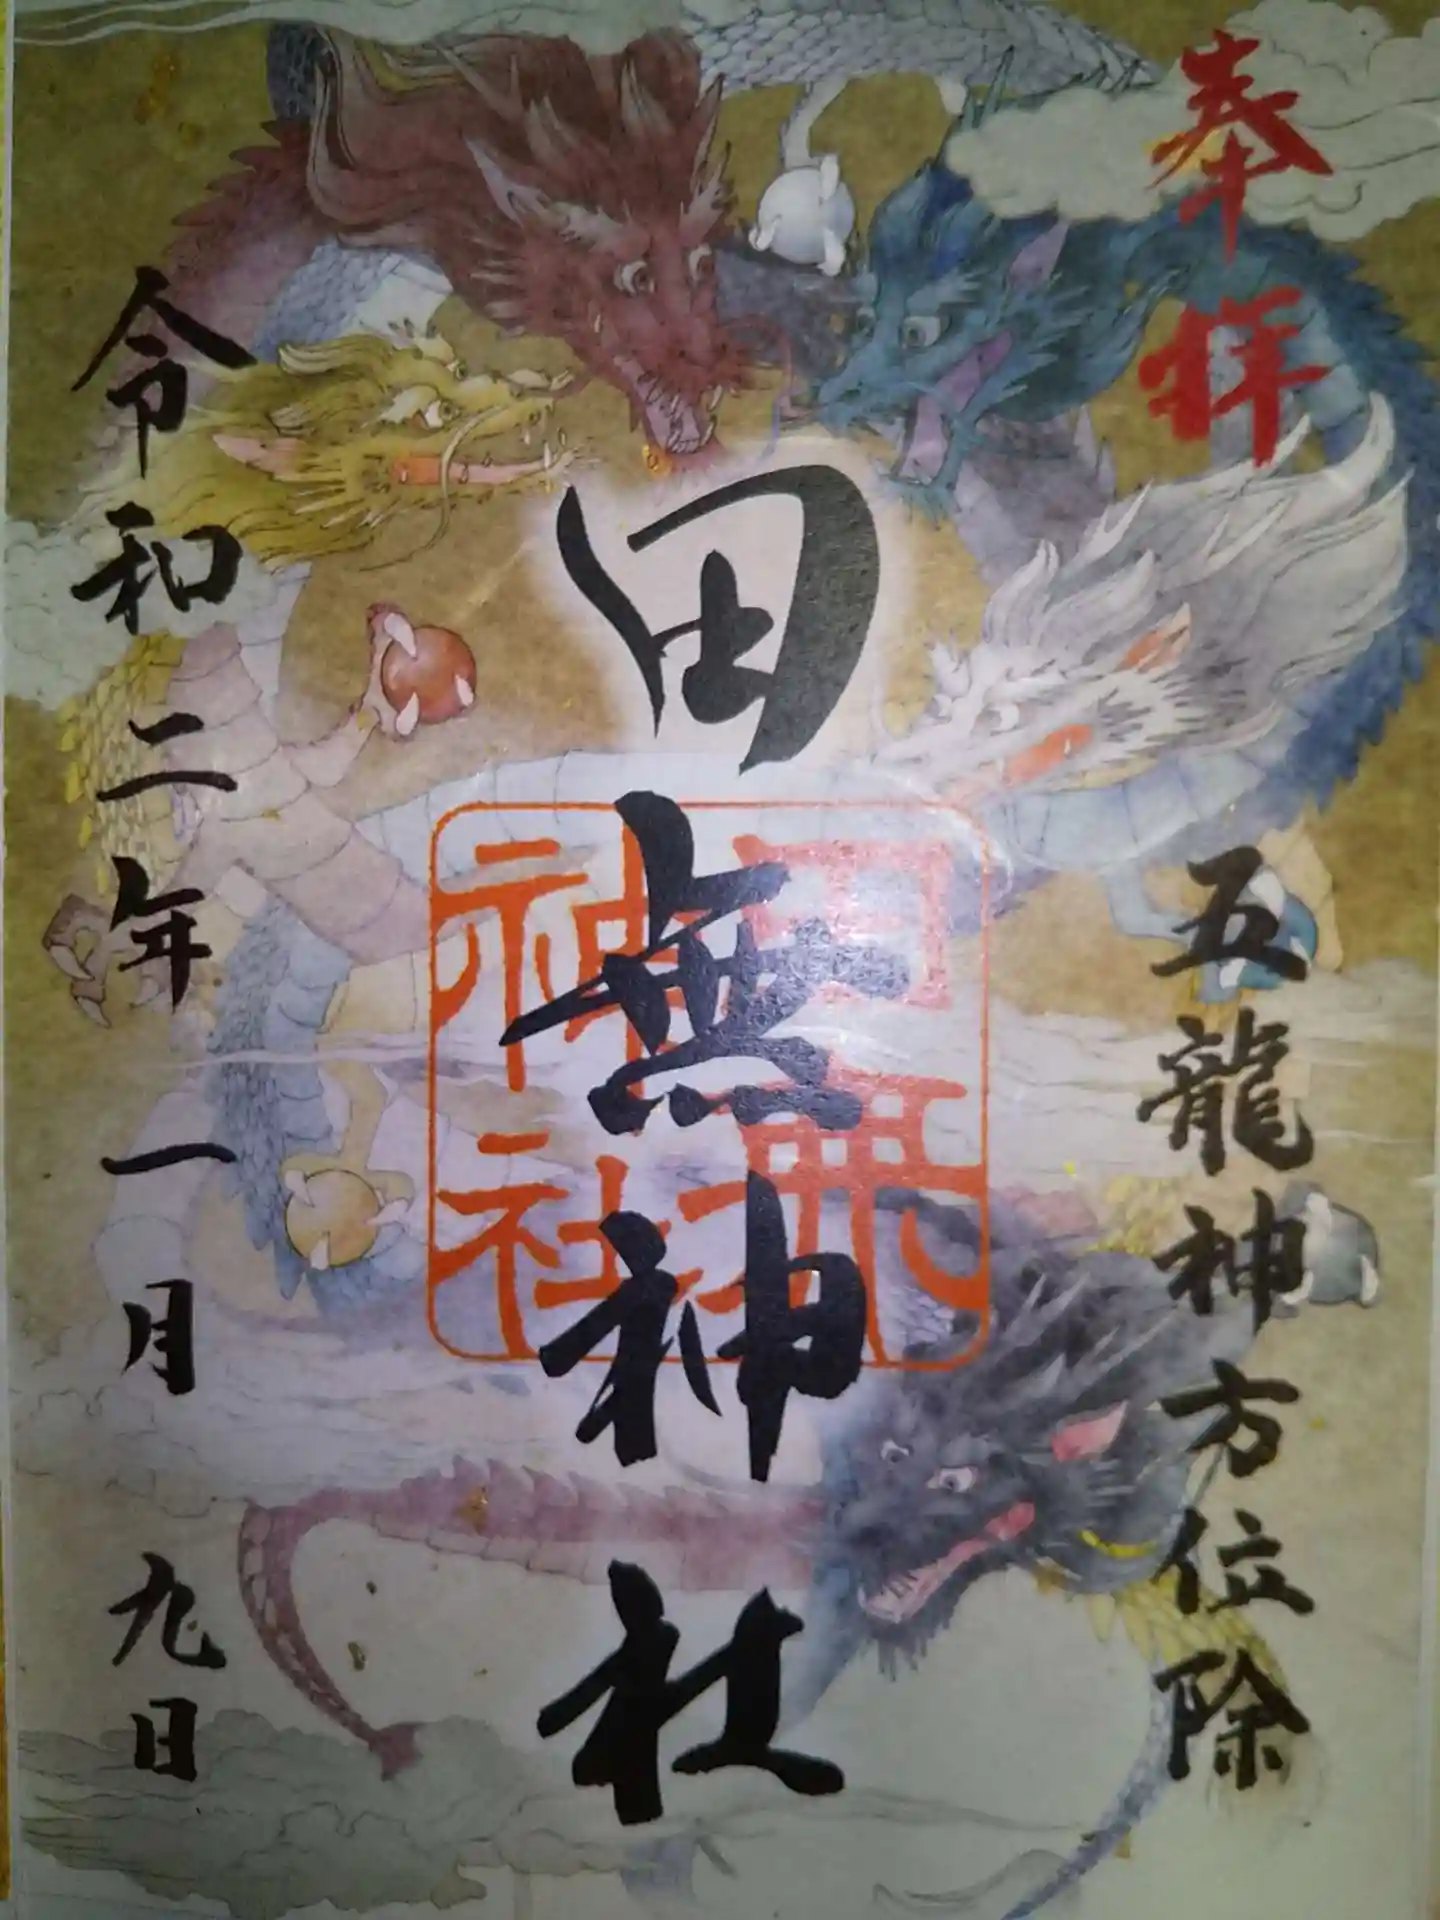 奉拝
五龍神方位除
田無神社
田無
神社
令和二年一月九日